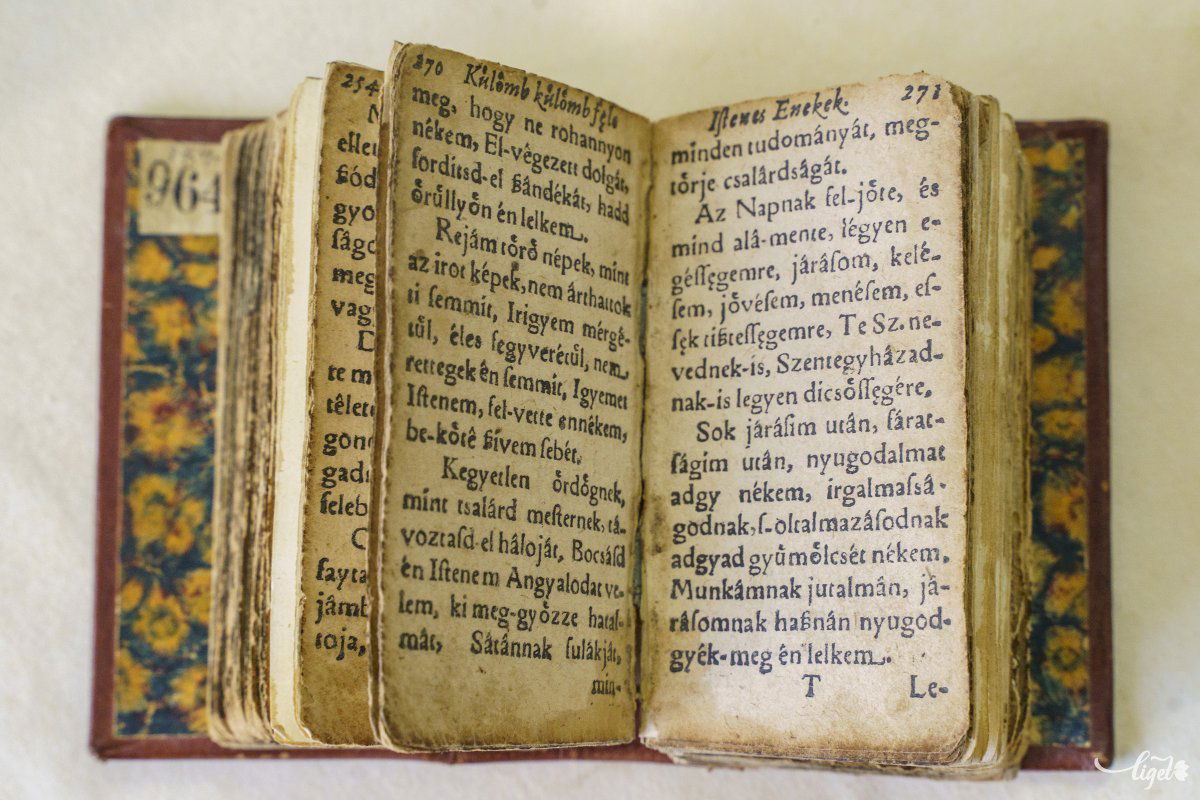 964
254
elle
ßód
gyo
ſágo
meg
vag
te m
têlete
gon
gad
ſeleb
fayta
jâmb
toja,
270 Kûlômb kûlômb fęle
meg, hogy ne rohannyon
nékem, El-vêgezett dolgát,
fordítsd-el ßândékát, hadd
ôrûllyôn én lelkem.
Rejám tôrô népek, mint
az irot képek, nem árthattok
ti ſemmit, Irigyem mérgé-
tûl, éles fegyverétûl, nem
rettegek ên ſemmit, Igyemet
Iſtenem, fel-vette ennékem,
be-kôtê ßívem ſebét.
Kegyetlen ôrdôgnek,
mint tsalárd meſternek, tá-
voztasd-el hâloját, Bocsásd
ên Iſtenem Angyalodat ve-
lem, ki meg-gyôzze hatal-
mát, Sátánnak ſulákját,
min-
Iſtenes Enekek. 271
minden tudományát, meg-
tôrje csalárdságát.
Az Napnak fel-jôte, és
mind alâ-mente, légyen e-
géſſęgemre, járáſom, kelé-
ſem, jôvéſem, menéſem, eſ-
ſęk tißteſſęgemre, Te Sz. ne-
vednek-is, Szentegyházad-
nak-is legyen dicsôſſęgére.
Sok járáſim után, fárat-
ſágim után, nyugodalmat
adgy nékem, irgalmaſsá-
godnak, ſ-oltalmazáſodnak
adgyad gyûmôlcsét nékem.
Munkâmnak jutalmân, já-
ráſomnak haßnán nyugod-
gyék-meg ên lelkem.
T Le-
liget